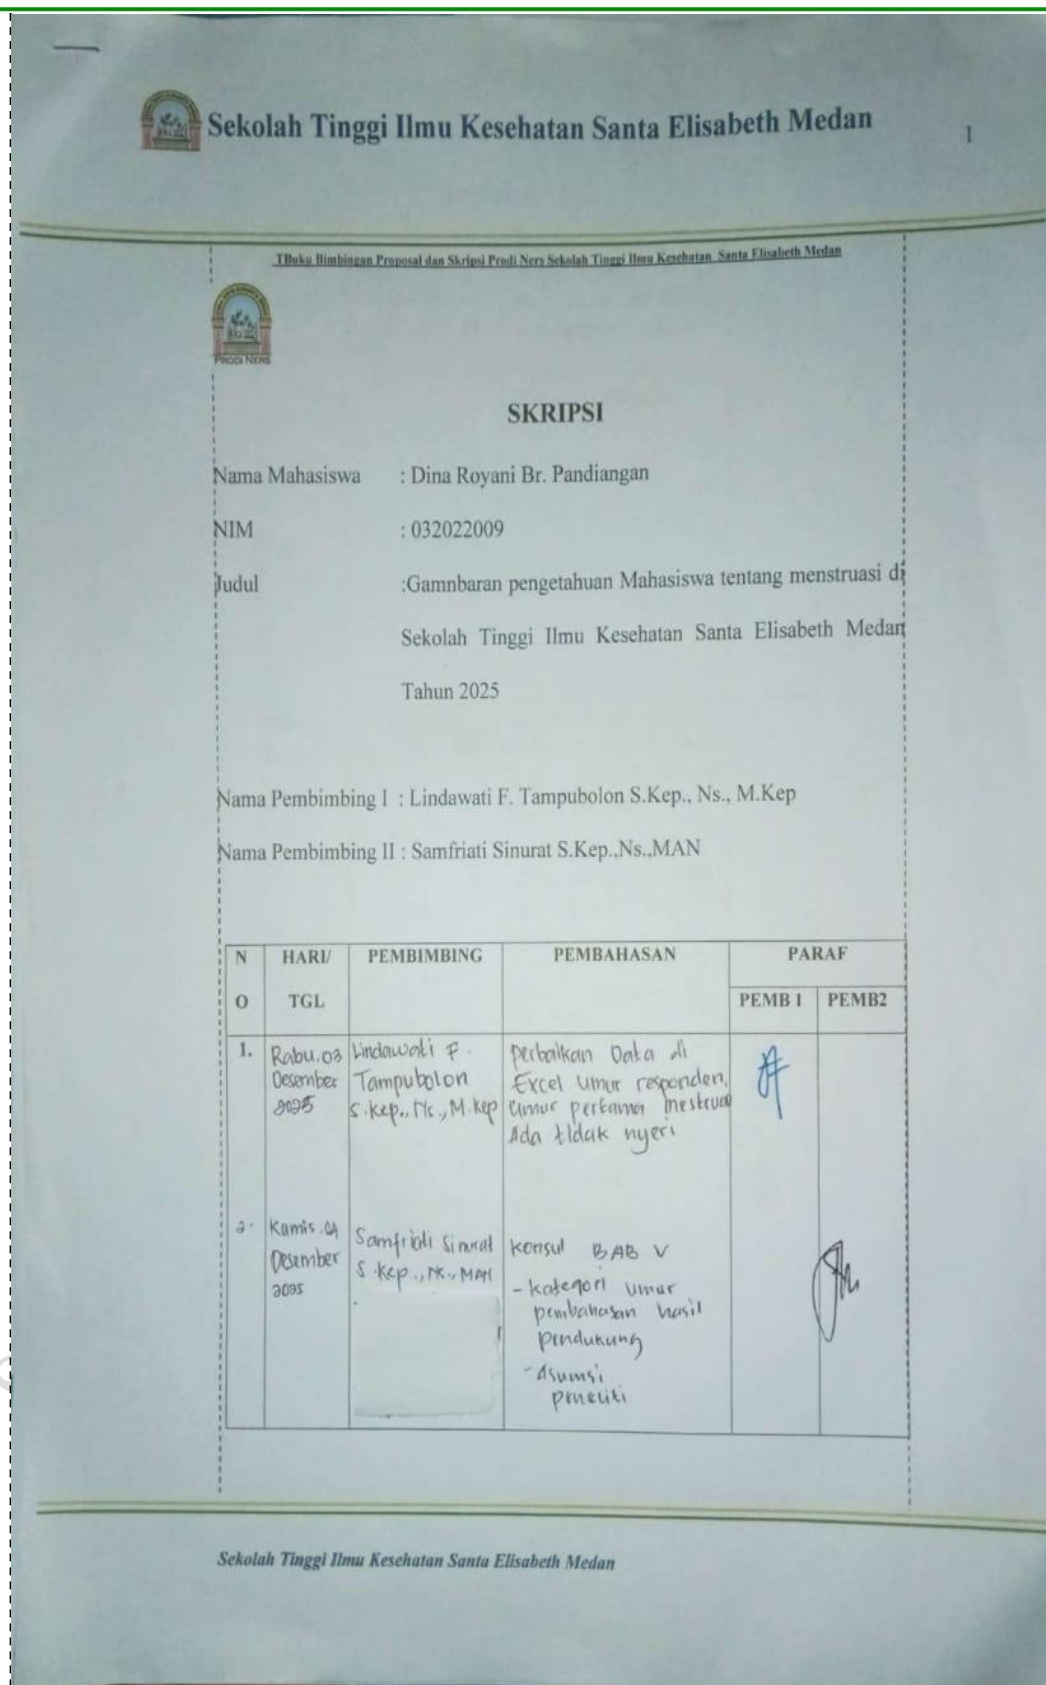 Sekolah Tinggi Ilmu Kesehatan Santa Elisabeth Medan
1
TBuku Bimbingan Proposal dan Skripsi Prodi Ners Sekolah Tinggi Ilmu Kesehatan Santa Elisabeth Medan
PRODI NERS
SKRIPSI
Nama Mahasiswa : Dina Royani Br. Pandiangan
NIM : 032022009
Judul :Gamnbaran pengetahuan Mahasiswa tentang menstruasi di
Sekolah Tinggi Ilmu Kesehatan Santa Elisabeth Medan
Tahun 2025
Nama Pembimbing I : Lindawati F. Tampubolon S.Kep., Ns., M.Kep
Nama Pembimbing II : Samfriati Sinurat S.Kep.,Ns.,MAN
N HARI/ PEMBIMBING PEMBAHASAN PARAF
O TGL PEMB 1 PEMB2
1. Rabu.03 Lindawati F. perbaikan Data di
Desember Tampubolon Excel Umur responden,
2025 S.Kep., Ns., M.Kep Umur pertama mestruasi
Ada tidak nyeri
2. Kamis.04 Samfriati Sinurat Konsul BAB V
Desember S.Kep., Ns., MAN - Kategori umur
2025 pembahasan hasil
pendukung
- Asumsi
peneliti
Sekolah Tinggi Ilmu Kesehatan Santa Elisabeth Medan